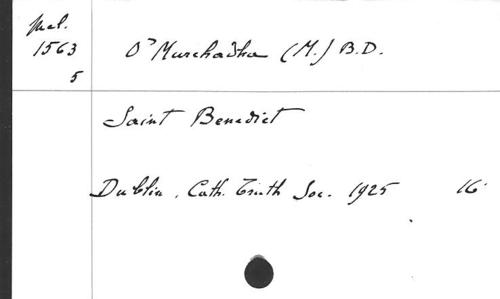 Mel.
1563
5
O'Murchadha (M.) B.D.
Saint Benedict
Dublin, Cath. Truth Soc. 1925 16°